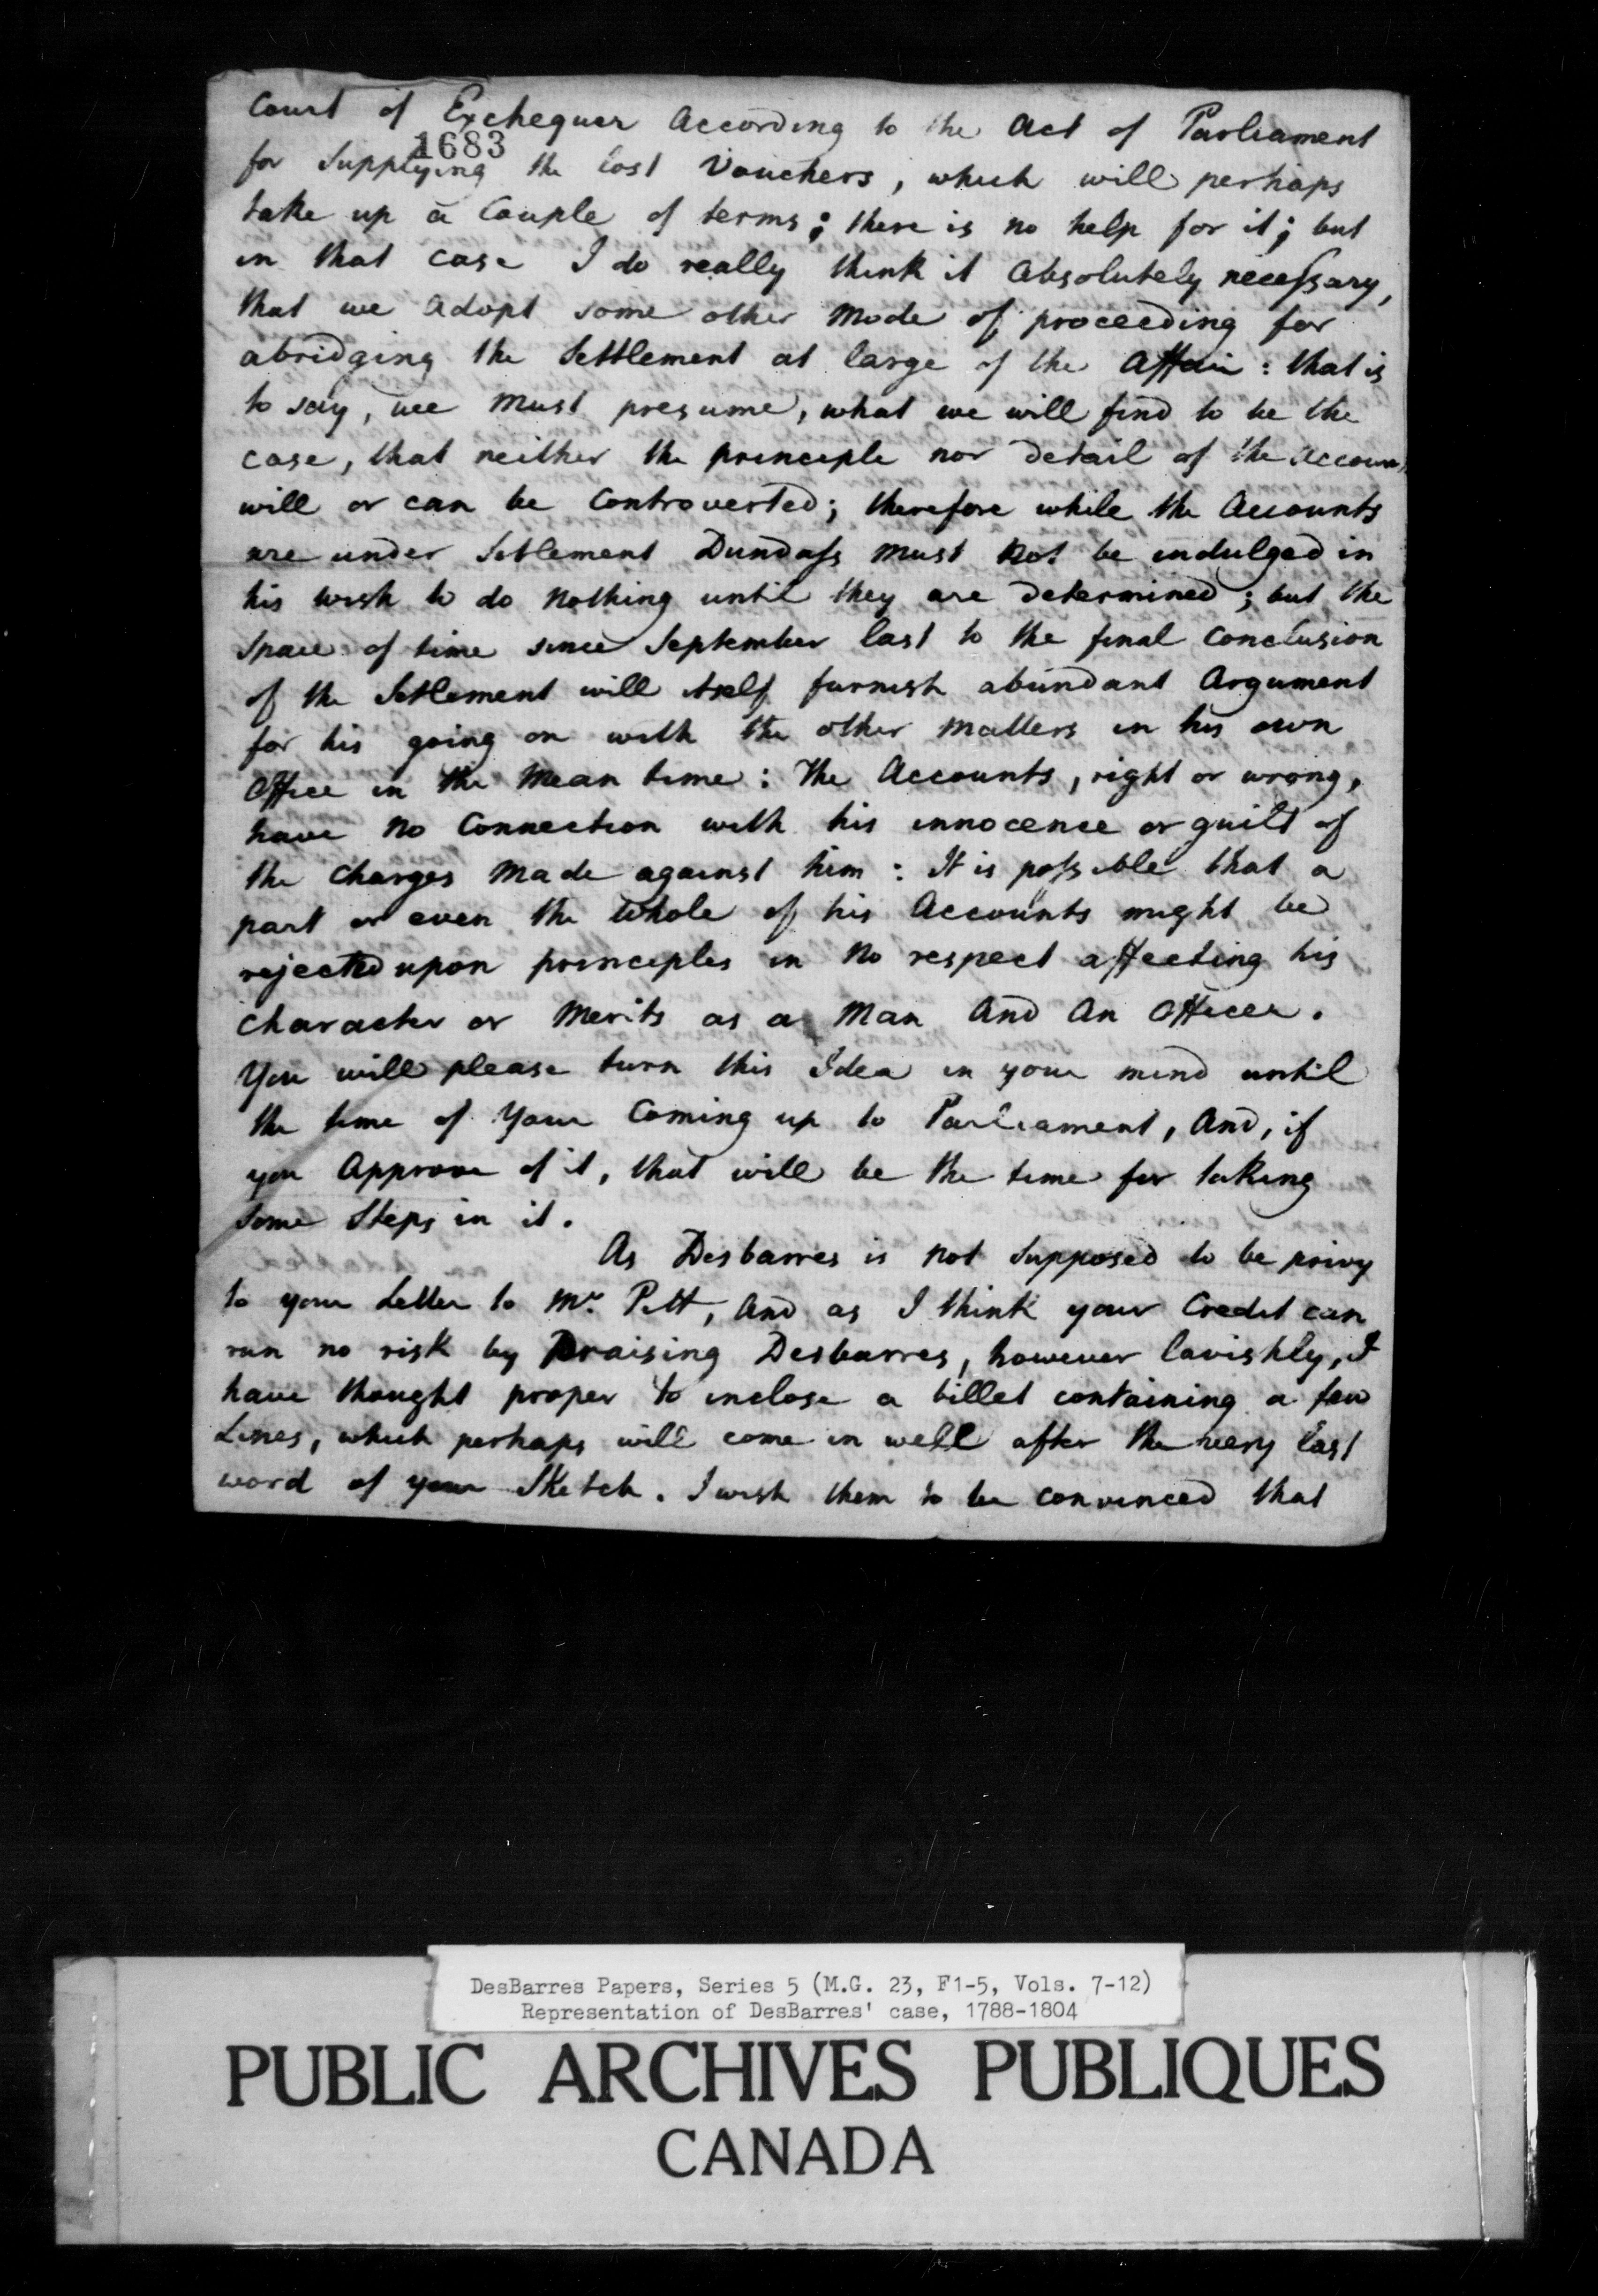 Court of Exchequer According to the Act of Parliament
1683
for Supplying the lost Vouchers, which will perhaps
take up a Couple of terms; there is no help for it; but
in that case I do really think it Absolutely necessary,
that we Adopt some other Mode of proceeding for
abridging the Settlement at large of the Affair: that is
to say, we Must presume, what we will find to be the
case, that neither the principle nor detail of the Accounts
will or can be Controverted; therefore while the Accounts
are under Settlement Dundass Must Not be indulged in
his wish to do Nothing until they are Determined; but the
Space of time since September last to the final Conclusion
of the Settlement will itself furnish abundant Argument
for his going on with the other Matters in his own
Office in the Mean time: The Accounts, right or wrong,
have No Connection with his innocence or guilt of
the Charges Made against him: It is possible that a
part or even the Whole of his Accounts might be
rejected upon principles in No respect affecting his
Character or Merits as a Man And An Officer.
You will please turn this Idea in your mind until
the time of Your Coming up to Parliament, And, if
you Approve of it, that will be the time for taking
some Steps in it.
As Desbarres is not Supposed to be privy
to your Letter to Mr. Pitt, And as I think your Credit can
run no risk by Praising Desbarres, however lavishly, I
have thought proper to inclose a billet containing a few
Lines, which perhaps will come in well after the very last
word of your Sketch. I wish them to be convinced that
DesBarres Papers, Series 5 (M.G. 23, F1-5, Vols. 7-12)
Representation of DesBarres' case, 1788-1804
PUBLIC ARCHIVES PUBLIQUES
CANADA